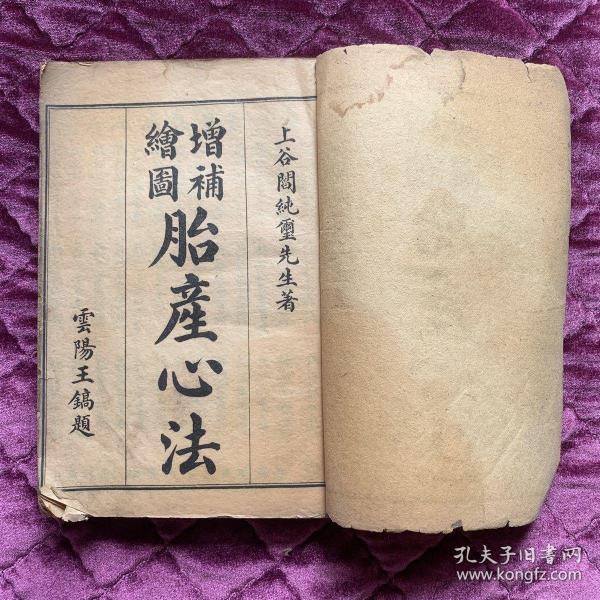 上谷閻純璽先生著
增補
繪圖
胎產心法
雲陽王鎬題
孔夫子旧書网
www.kongfz.com